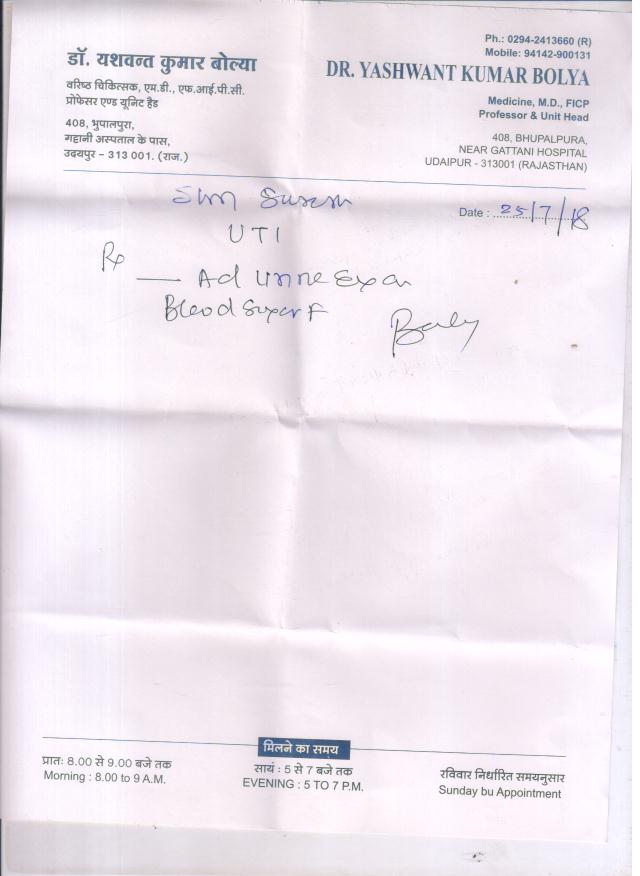 Ph.: 0294-2413660 (R)
Mobile: 94142-900131
डॉ. यशवन्त कुमार बोल्या
DR. YASHWANT KUMAR BOLYA
वरिष्ठ चिकित्सक, एम.डी., एफ.आई.पी.सी.
प्रोफेसर एण्ड यूनिट हैड
Medicine, M.D., FICP
Professor & Unit Head
408, भुपालपुरा,
गट्टानी अस्पताल के पास,
उदयपुर - 313 001. (राज.)
408, BHUPALPURA,
NEAR GATTANI HOSPITAL
UDAIPUR - 313001 (RAJASTHAN)
Date : 25/7/18
UTI
Rx
Ad Urine Exam
Blood Sugar F
मिलने का समय
प्रातः 8.00 से 9.00 बजे तक
Morning : 8.00 to 9 A.M.
सायं : 5 से 7 बजे तक
EVENING : 5 TO 7 P.M.
रविवार निर्धारित समयनुसार
Sunday bu Appointment